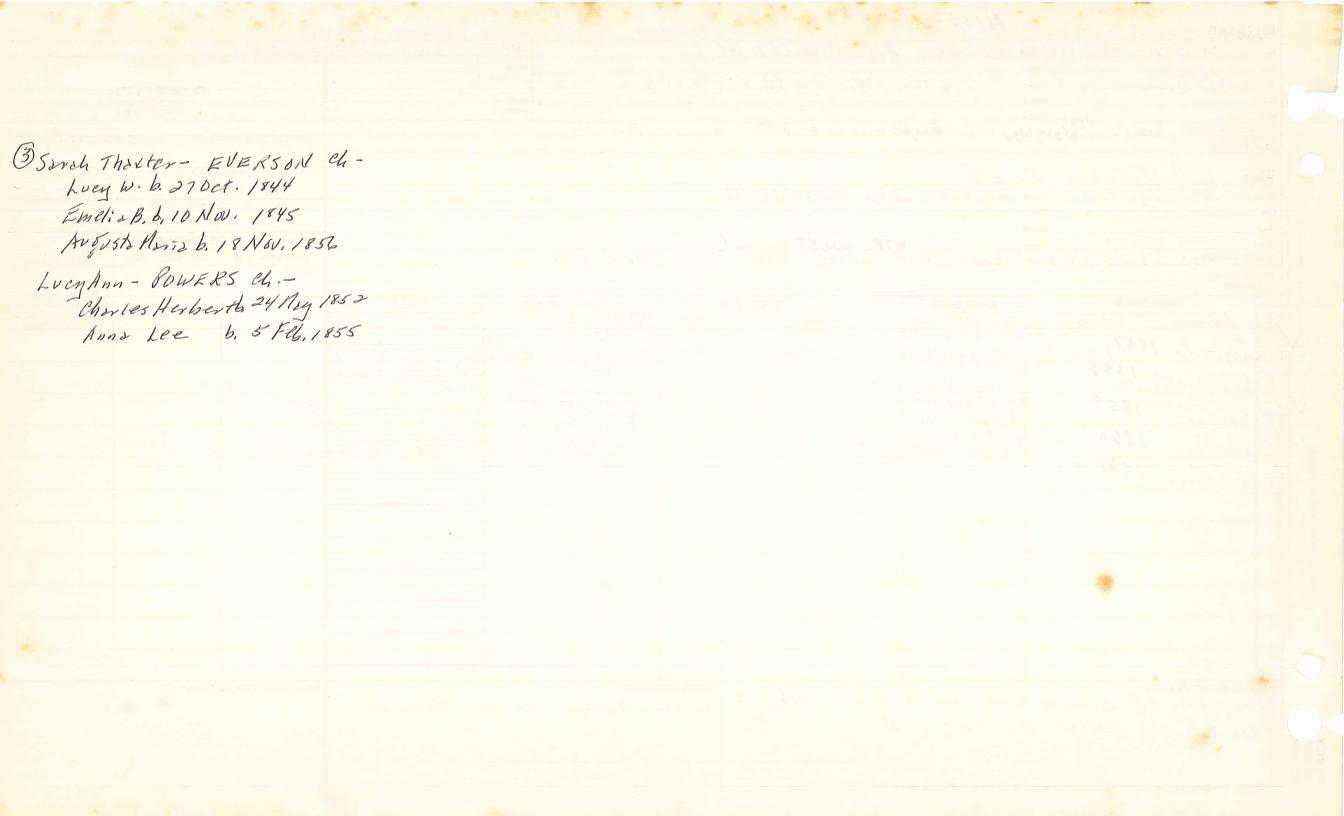 ③ Sarah Thaxter - EVERSON Ch -
Lucy W. b. 27 Oct. 1844
Emelia B. b. 10 Nov. 1845
Augusta Maria b. 18 Nov. 1856
Lucy Ann - POWERS Ch. -
Charles Herbert b 24 May 1852
Anna Lee b. 5 Feb. 1855